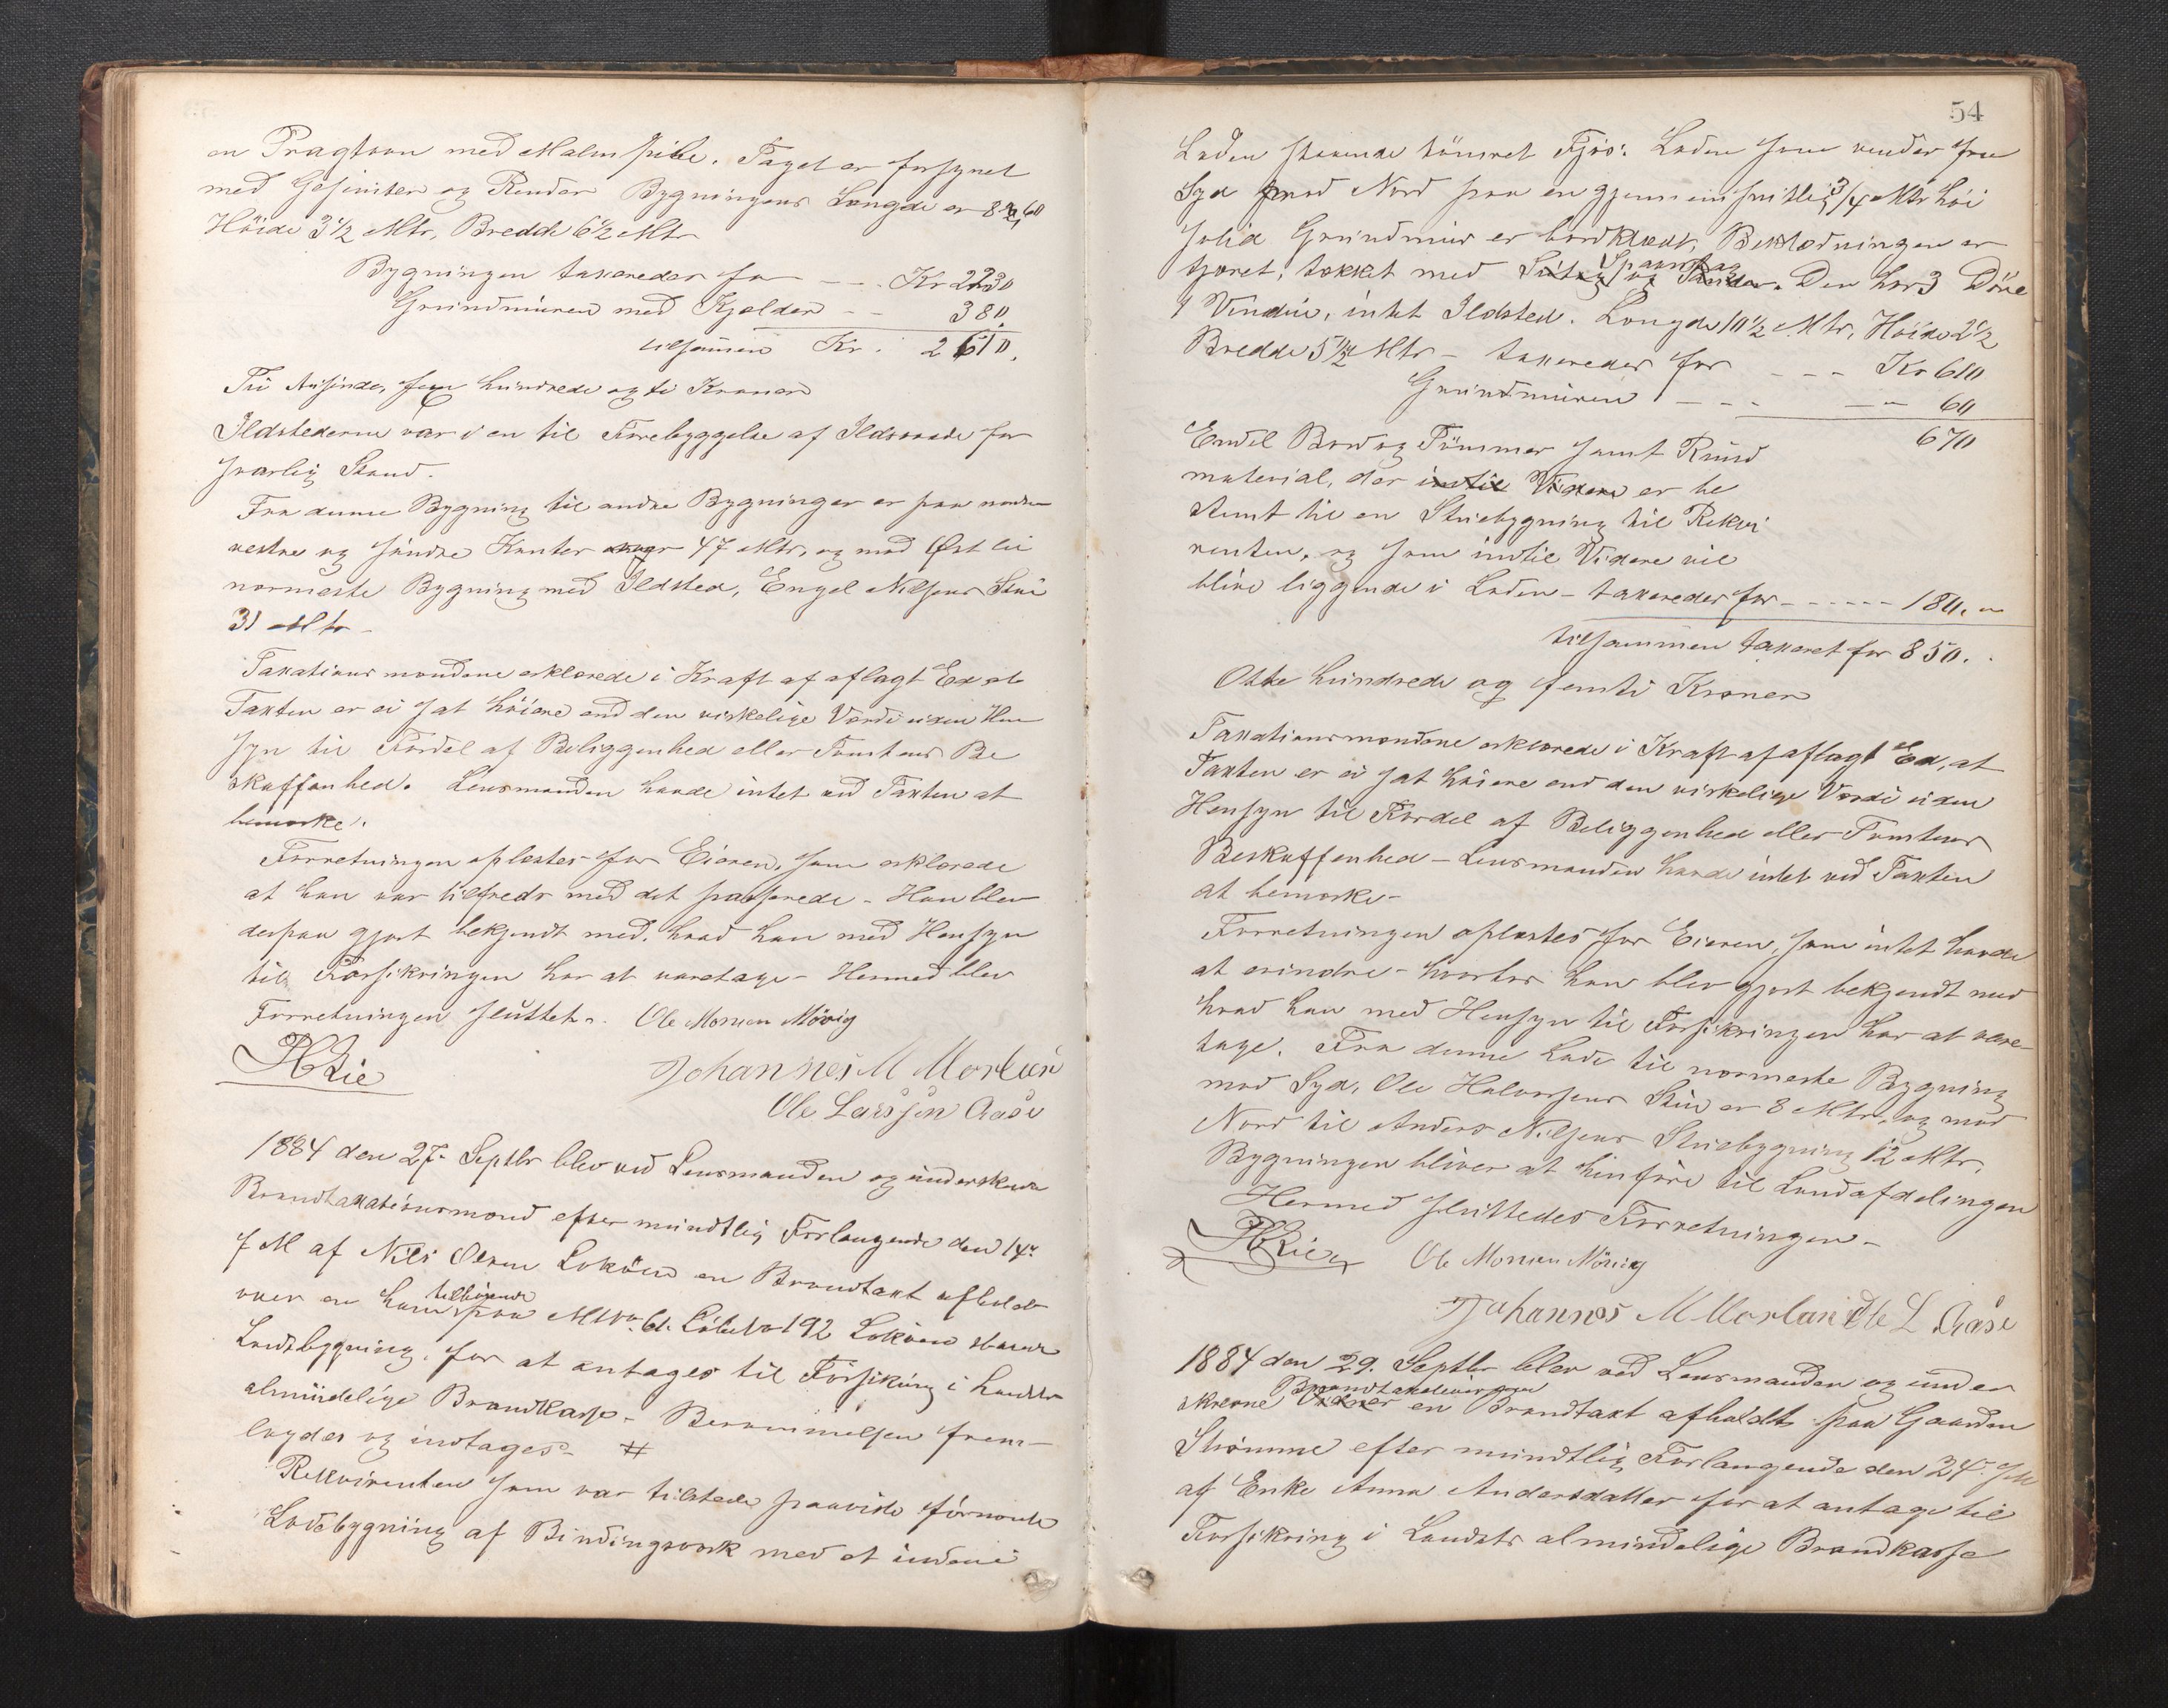 en Pragtovn med Malmpibe. Taget er forsynet
med Gesimser og Render Bygningens Længde er 8,60
Höide 3 1/2 Mtr, Bredde 6 1/2 Mtr
Bygningen taxeredes for — — Kr 2230
Grundmuren med Kjelder — — 380.
tilsamen Kr. 2610.
To Tusinde, sex hundrede og ti Kroner
Ildstederne var i en til Forebyggelse af Ildsvaade for
svarlig Stand.
Fra denne Bygning til andre Bygninger er paa nordre
vestre og søndre Kanter over 47 Mtr, og mod Øst til
nærmeste Bygning med Ildsted, Engel Nilsens Stue
31 Mtr —
Taxationsmændene erklærede i Kraft af aflagt Ed at
Taxten er ei sat høiere end den virkelige Værdi uden Hen
syn til Fordel af Beliggenhed eller Tomtens Be
skaffenhed. Lensmanden havde intet ved Taxten at
bemærke.
Forretningen oplæstes for Eieren, som erklærede
at han var tilfreds med det passerede — Han blev
derpaa gjort bekjendt med, hvad han med Hensyn
til Forsikringen har at varetage — Hermed blev
Forretningen sluttet. Ole Monsen Mövig
HLie
Johannes M Morland
Ole Larssen Aase
1884 den 27. Septbr blev ved Lensmanden og underskrevne
Brandtaxationsmænd efter mundtlig Forlangende den 14.
f M af Nils Olsen Loköen en Brandtaxt afholdt
over en ham tilhørende paa MNo 61. Löbeno 192 Loköen staaende
Ladebygning, for at antages til Forsikring i Landets
almindelige Brandkasse — Berammelsen frem—
lagdes og indtages — #
Rekvirenten som var tilstede paaviste förnævnte
Ladebygning af Bindingsverk med et indeni
54
Laden staaende tömret Fjös: Laden som vender fra
Syd mod Nord paa en gjennemsnitlig 3/4 Mtr höi
solid Grundmur er bordklædt, Beklædningen er
tjæret, tækket med Spaantag. Den har 3 Döre
1 Vindue, intet Ildsted. Længde 10 1/2 Mtr, Höide 2 1/2
Bredde 5 1/2 Mtr — taxeredes for — — — Kr 610
Grundmuren — — — — 60
670
Endel Bord og Tömmer samt Rund
material, der er be
stemt til en Stuebygning til Rekvi
renten, og som indtil Videre vil
blive liggende i Laden — taxeredes for — — — 180. "
tilsammen taxeret for 850.
Otte hundrede og femti Kroner
Taxationsmændene erklærede i Kraft af aflagt Ed, at
Taxten er ei sat høiere end den virkelige Værdi uden
Hensyn til Fordel af Beliggenhed eller Tomtens
Beskaffenhed — Lensmanden havde intet ved Taxten
at bemærke —
Forretningen oplæstes for Eieren, som intet havde
at erindre — hvorhos han blev gjort bekjendt med
hvad han med Hensyn til Forsikringen har at vare—
tage. Fra denne Lade til nærmeste Bygning
mod Syd, Ole Halvorsens Stue er 8 Mtr, og mod
Nord til Anders Nilsens Stuebygning 12 Mtr.
Bygningen bliver at henføre til Landafdelingen
Hermed sluttedes Forretningen —
HLie Ole Monsen Mövig
Johannes M Morland Ole L. Aase
1884 den 29. Septbr blev ved Lensmanden og under
skrevne Brandtaxationsmænd en Brandtaxt afholdt paa Gaarden
Strömme efter mundtlig Forlangende den 24. f M
af Enke Anna Andersdatter for at antage til
Forsikring i Landets almindelige Brandkasse